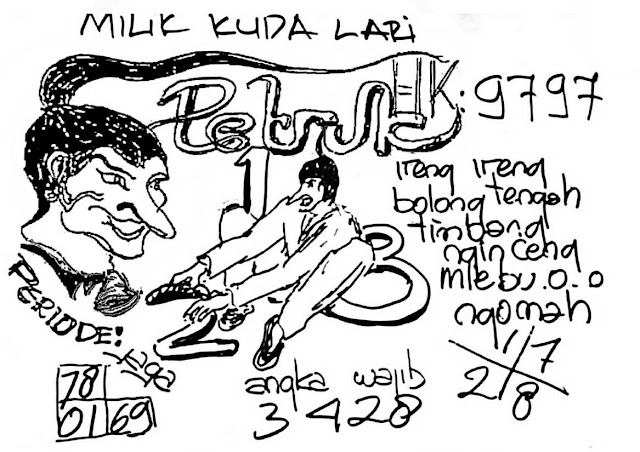 MILIK KUDA LARI
HK: 9797
1
2 3
ireng ireng
bolong tengah
timbang
nginceng
mlebu.o.o
ngomah
PERIODE:
Jaga
78
01 69
angka wajib
3 4 2 8
1 7
2 8